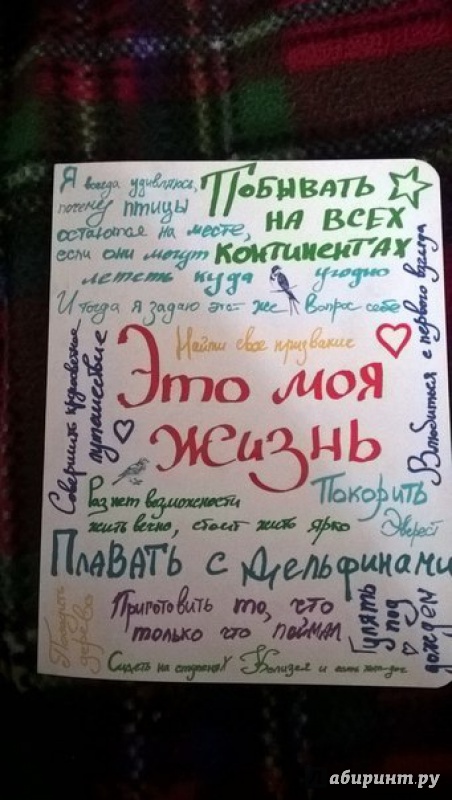 Я всегда удивляюсь,
почему птицы
остаются на месте,
если они могут
лететь куда угодно
И тогда я задаю этот же вопрос себе
ПОБЫВАТЬ
НА ВСЕХ
КОНТИНЕНТАХ
Влюбиться с первого взгляда
Найти свое призвание
Совершить кругосветное
путешествие
Это моя
жизнь
Раз нет возможности
жить вечно, стоит жить ярко
Покорить
Эверест
ПлаВАТЬ с дельфинами
Посадить
дерево
Приготовить то, что
только что поймал
Гулять
под
дождем
Сидеть на ступенях Колизея и есть хот-дог
абиринт.ру